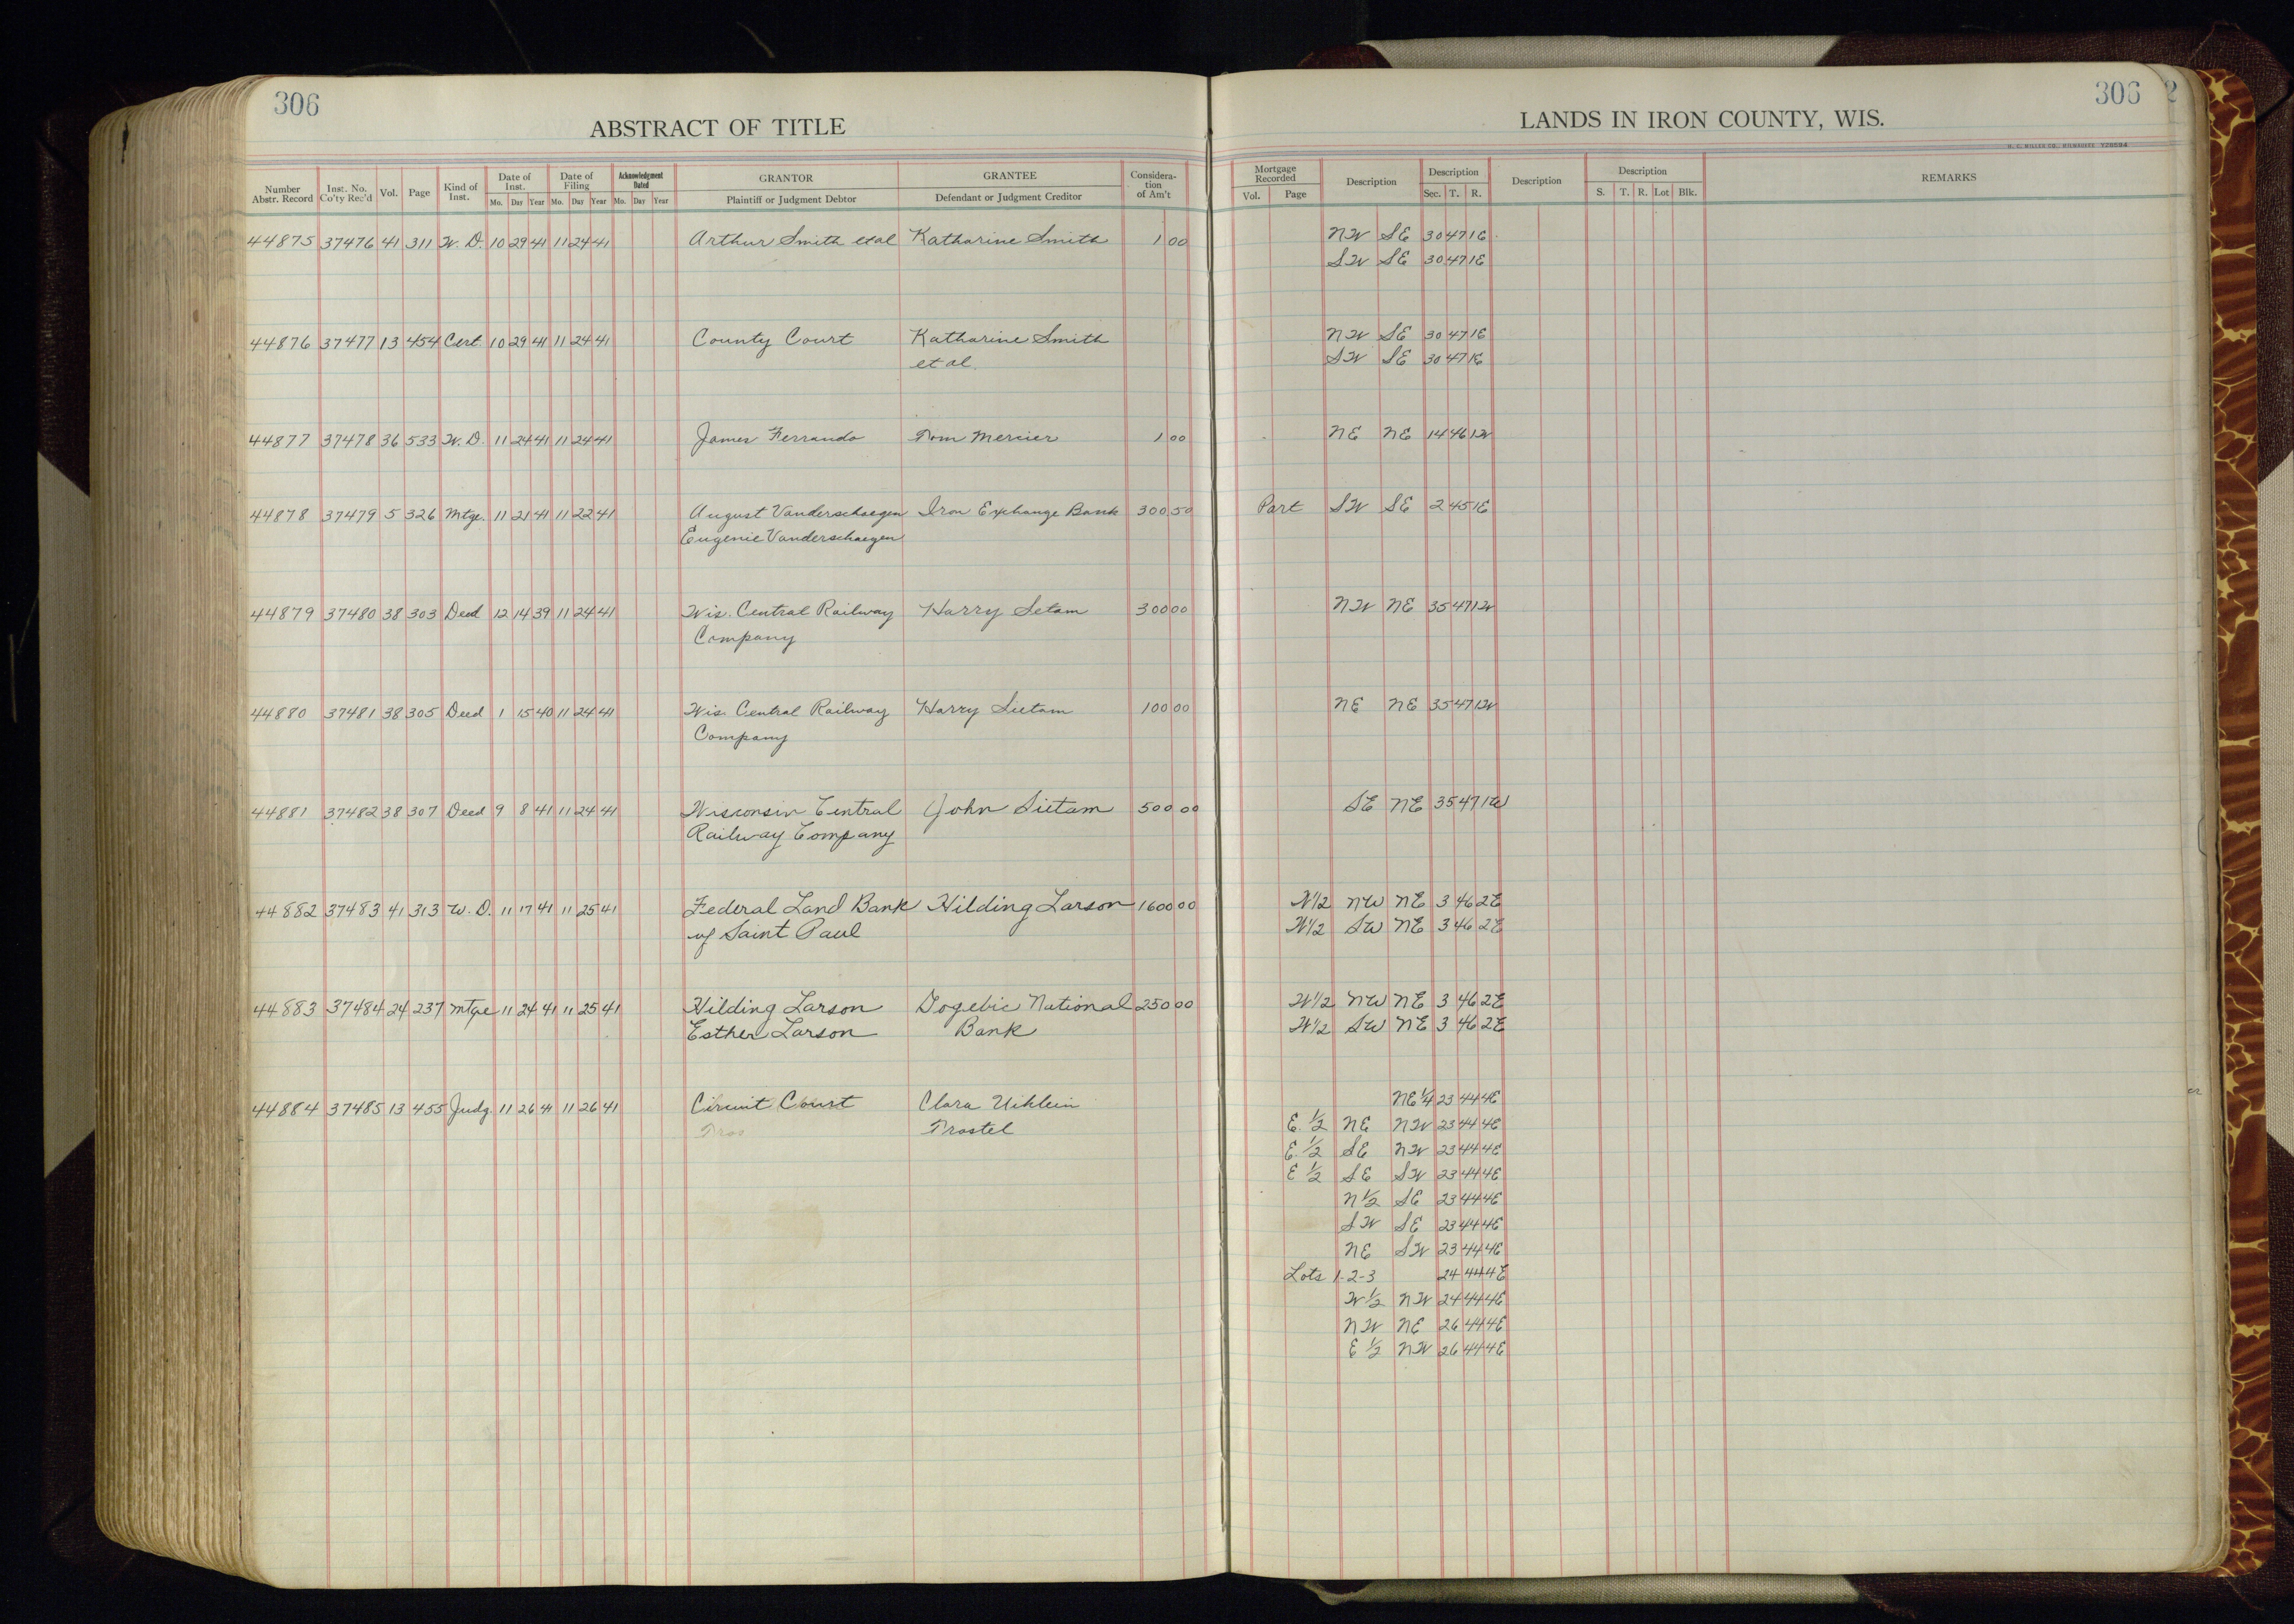 306
ABSTRACT OF TITLE
Number Abstr. Record | Inst. No. Co'ty Rec'd | Vol. | Page | Kind of Inst. | Date of Inst. Mo. Day Year | Date of Filing Mo. Day Year | Acknowledgment Dated Mo. Day Year | GRANTOR Plaintiff or Judgment Debtor | GRANTEE Defendant or Judgment Creditor | Consideration of Am't
306 2
LANDS IN IRON COUNTY, WIS.
H. C. MILLER CO., MILWAUKEE Y28694
Mortgage Recorded Vol. Page | Description | Description Sec. T. R. | Description | Description S. T. R. Lot Blk. | REMARKS
44875 37476 41 311 W. D. 10 29 41 11 24 41 Arthur Smith et al Katharine Smith 1 00 NW SE 30 47 1E
SW SE 30 47 1E
44876 37477 13 454 Cert. 10 29 41 11 24 41 County Court Katharine Smith NW SE 30 47 1E
et al. SW SE 30 47 1E
44877 37478 36 533 W. D. 11 24 41 11 24 41 James Ferrando Tom Mercier 1 00 NE NE 14 46 1W
44878 37479 5 326 Mtge. 11 21 41 11 22 41 August Vanderschaegen Iron Exchange Bank 300 50 Part SW SE 2 45 1E
Eugenie Vanderschaegen
44879 37480 38 303 Deed 12 14 39 11 24 41 Wis. Central Railway Harry Setam 300 00 NW NE 35 47 1W
Company
44880 37481 38 305 Deed 1 15 40 11 24 41 Wis. Central Railway Harry Sietam 100 00 NE NE 35 47 1W
Company
44881 37482 38 307 Deed 9 8 41 11 24 41 Wisconsin Central John Sietam 500 00 SE NE 35 47 1W
Railway Company
44882 37483 41 313 W. D. 11 17 41 11 25 41 Federal Land Bank Hilding Larson 1600 00 W1/2 NW NE 3 46 2E
of Saint Paul W1/2 SW NE 3 46 2E
44883 37484 24 237 Mtge 11 24 41 11 25 41 Hilding Larson Gogebic National 250 00 W1/2 NW NE 3 46 2E
Esther Larson Bank W1/2 SW NE 3 46 2E
44884 37485 13 455 Judg. 11 26 41 11 26 41 Circuit Court Clara Uihlein NE 1/4 23 44 4E
Tros Trostel E. 1/2 NE NW 23 44 4E
E. 1/2 SE NW 23 44 4E
E 1/2 SE SW 23 44 4E
N 1/2 SE 23 44 4E
SW SE 23 44 4E
NE SW 23 44 4E
Lots 1-2-3 24 44 4E
W 1/2 NW 24 44 4E
NW NE 26 44 4E
E 1/2 NW 26 44 4E